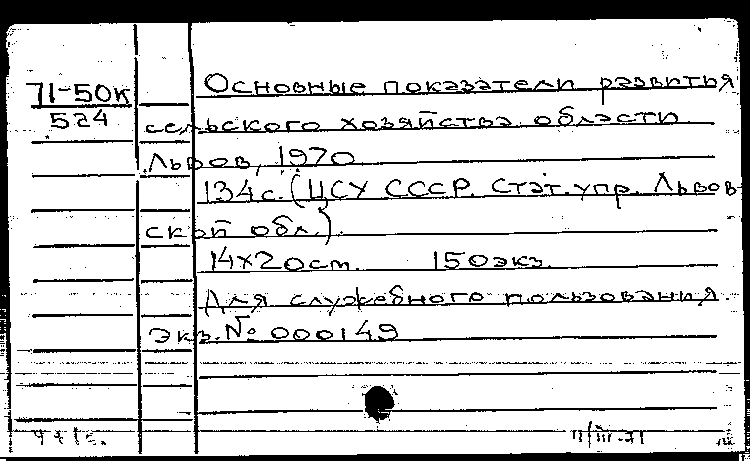 71-50к
524
Основные показатели развитья
сельского хозяйства области
Львов, 1970
134с. (ЦСУ СССР. Стат. упр. Львов-
ской обл.).
14х20cm. 150экз.
Для служебного пользования.
Экз. № 000149
11/III-71